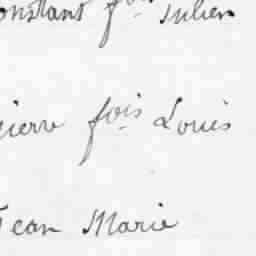 onstant fois Julien
ierre fois Louis
Jean Marie